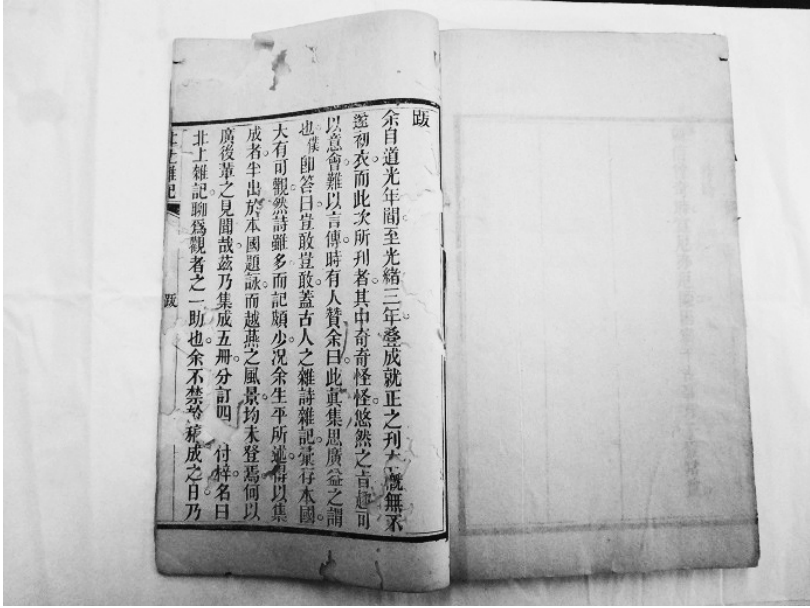 跋
余自道光年間至光緒三年叠成就正之刊 慨無不
遂初衣而此次所刊者其中奇奇怪怪悠然之旨趣可
以意會難以言傳時有人贊余曰此眞集思廣益之謂
也僕卽答曰豈敢豈敢蓋古人之雜詩雜記彙存本國
大有可觀然詩雖多而記頗少况余生平所 得以集
成者半出於本國題詠而越燕之風景均未登焉何以
廣後輩之見聞哉茲乃集成五冊分訂四 付梓名曰
北上雜記聊爲觀者之一助也余不禁 成之日乃
北上雜記
跋